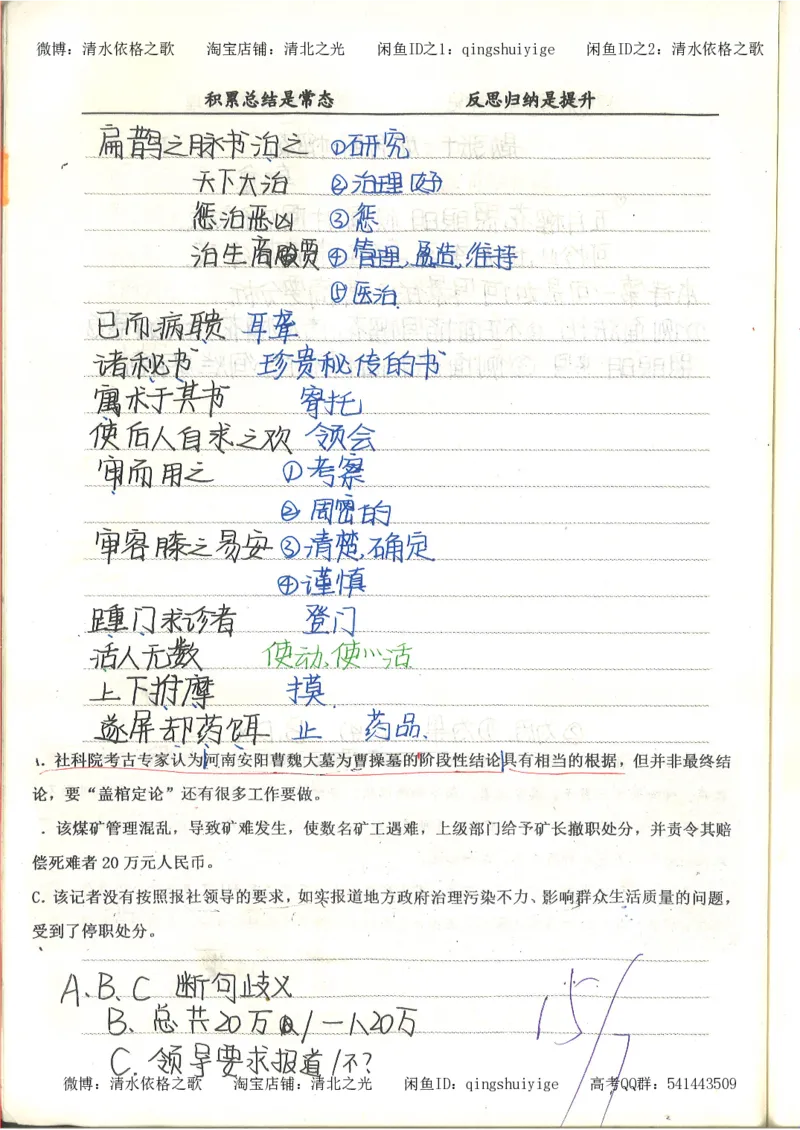 微博：清水依格之歌 淘宝店铺：清北之光 闲鱼ID之1：qingshuiyige 闲鱼ID之2：清水依格之歌
积累总结是常态 反思归纳是提升
扁鹊之脉书治之 ①研究
天下大治 ②治理(好)
惩治恶凶 ③惩
治生商贾 ④管理,营造,维持
⑤医治
已而病聩 耳聋
诸秘书 珍贵秘传的书
寓术于其书 寄托
使后人自求之欢 领会
审而用之 ①考察
②周密的
审容膝之易安 ③清楚,确定
④谨慎
踵门求诊者 登门
活人无数 使动,使~活
上下推摩 摸
遂屏却药饵 止 药品.
A. 社科院考古专家认为河南安阳曹魏大墓为曹操墓的阶段性结论具有相当的根据，但并非最终结
论，要“盖棺定论”还有很多工作要做。
．该煤矿管理混乱，导致矿难发生，使数名矿工遇难，上级部门给予矿长撤职处分，并责令其赔
偿死难者 20 万元人民币。
C. 该记者没有按照报社领导的要求，如实报道地方政府治理污染不力、影响群众生活质量的问题，
受到了停职处分。
A.B.C 断句歧义
B. 总共20万/一人20万
C. 领导要求报道/不?
微博：清水依格之歌 淘宝店铺：清北之光 闲鱼ID：qingshuiyige 高考QQ群：541443509